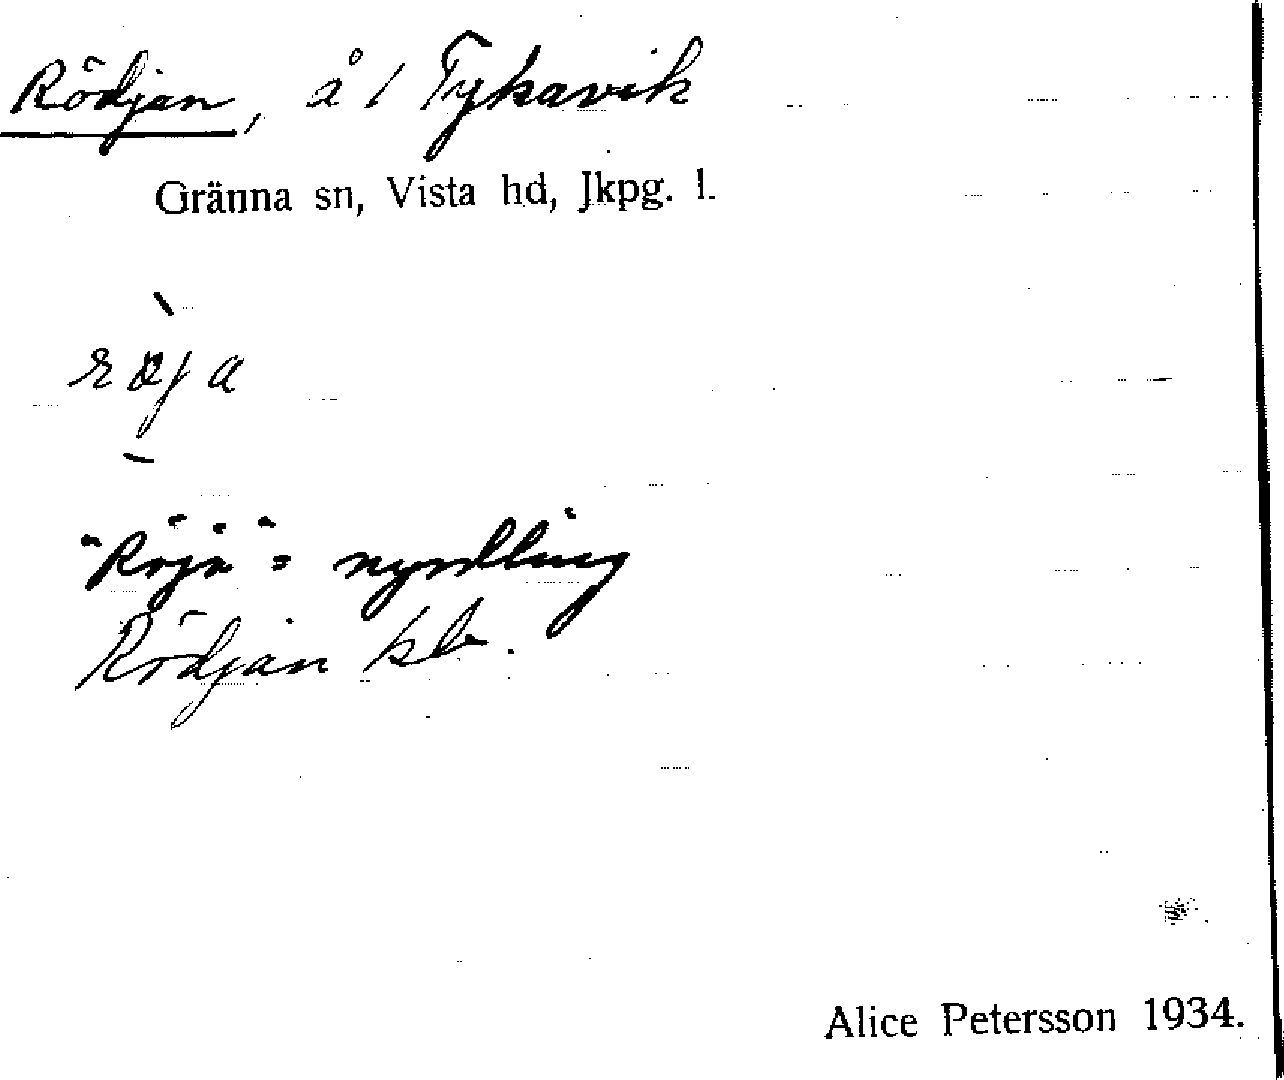 Rödjan, å 1 Tykavik
Gränna sn, Vista hd, Jkpg. l.
röja
"Röja" = nyodling
Rödjan kb.
Alice Petersson 1934.